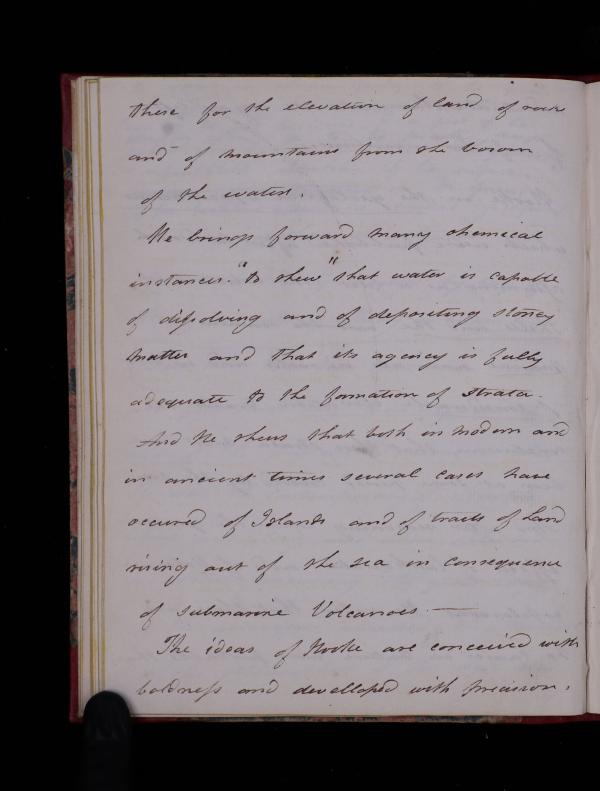 these for the elevation of land of rocks
and of mountains from the bosom
of the waters.
He brings forward many chemical
instances. "to shew" that water is capable
of dissolving and of depositing stoney
matter and that its agency is fully
adequate to the formation of strata.
And He shews that both in modern and
in ancient times several cases have
occured of Islands and of tracts of Land
rising out of the sea in consequence
of submarine Volcanoes. —
The ideas of Hooke are conceived with
boldness and develloped with precision.